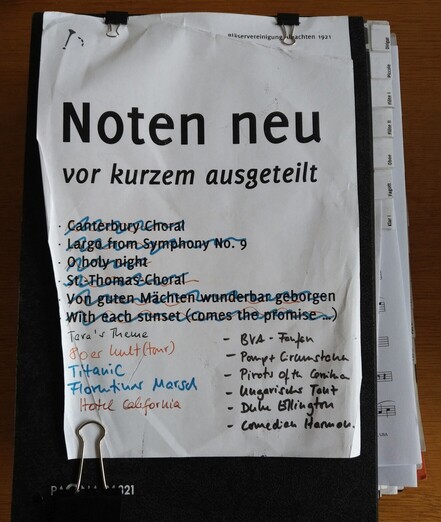 Bläservereinigung Machten 1921
Noten neu
vor kurzem ausgeteilt
· Canterbury Choral
· Largo from Symphony No. 9
· O holy night
· St. Thomas-Choral
· Von guten Mächten wunderbar geborgen
· With each sunset (comes the promise ...)
Tara's Theme
80er Kult(tour)
Titanic
Florentiner Marsch
Hotel California
- BVA - Fanfare
- Pomp + Circumstance
- Pirats of the
- Ungarische Tanz
- Duke Ellington
- Comedian Harmon.
Piccolo
Flöte I
Flöte II
Oboe
Fagott
Klar. I